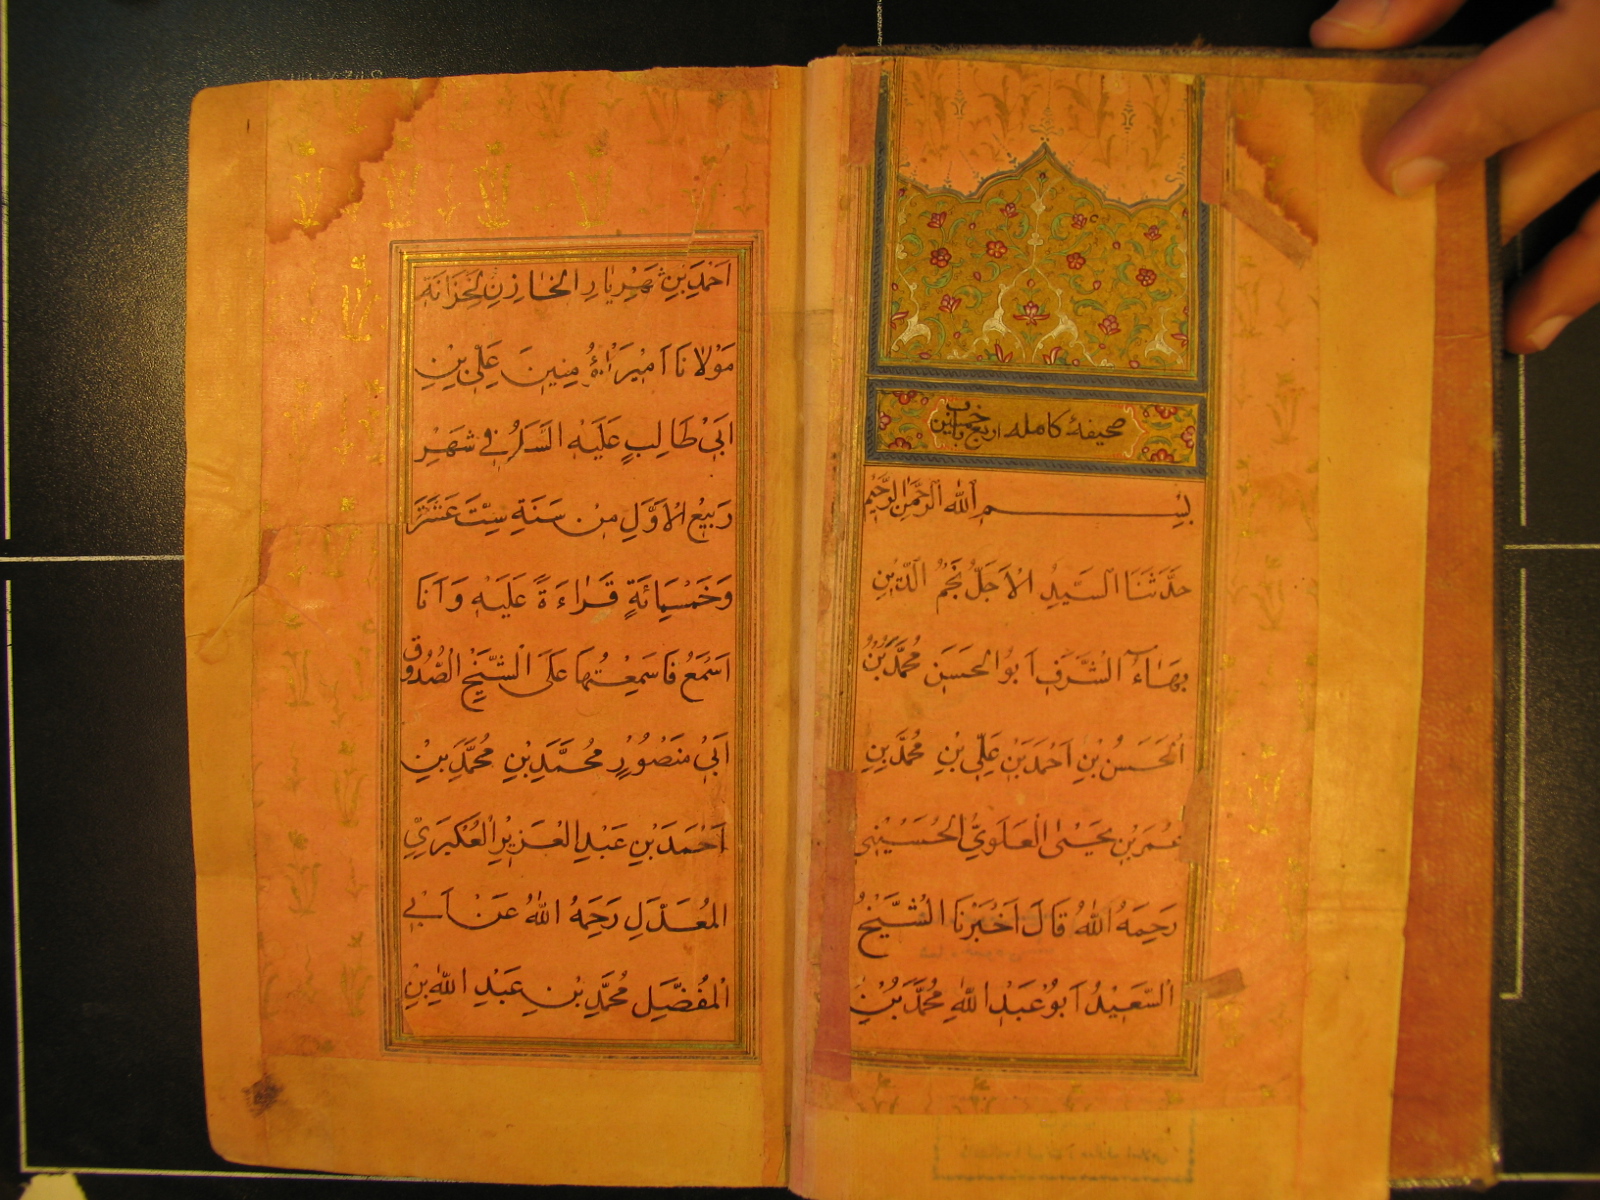 صحیفهٔ کامله
بِسْمِ اللّٰهِ الرَّحْمٰنِ الرَّحِيْمِ
حَدَّثَنَا السَّيِّدُ الْاَجَلُّ نَجْمُ الدِّيْنِ
بَهَاءُ الشَّرَفِ اَبُو الْحَسَنِ مُحَمَّدُ بْنُ
الْحَسَنِ بْنِ اَحْمَدَ بْنِ عَلِّيِ بْنِ مُحَمَّدِ بْنِ
عُمَرَ بْنِ يَحْيَى الْعَلَوِيُّ الْحُسَيْنِي
رَحِمَهُ اللّٰهُ قَالَ اَخْبَرَنَا الشَّيْخُ
السَّعِيْدُ اَبُوْ عَبْدِ اللّٰهِ مُحَمَّدُ بْنُ
اَحْمَدَ بْنِ شَهْرِيَارِ الْخَازِنِ لِخَزَانَةِ
مَوْلَانَا اَمِيْرَ الْمُؤْمِنِينَ عَلِيِّ بْنِ
اَبِيْ طَالِبٍ عَلَيْهِ السَّلَامُ فِي شَهْرِ
رَبِيْعِ الْاَوَّلِ مِنْ سَنَةِ سِتَّ عَشَرَةَ
وَخَمْسِمِائَةٍ قَرَاءَةً عَلَيْهِ وَ اَنَا
اَسْمَعُ فَاسَمِعْتُهَا عَلَى الشَّيْخِ الصَّدُوْقِ
اَبِيْ مَنْصُوْرٍ مُحَمَّدِ بْنِ مُحَمَّدِ بْنِ
اَحْمَدَ بْنِ عَبْدِ الْعَزِيْزِ الْعُكْبَرِيِّ
الْمُعَدَّلِ رَحِمَهُ اللّٰهُ عَنْ اَبِي
الْمُفَضَّلِ مُحَمَّدِ بْنِ عَبْدِ اللّٰهِ بْنِ